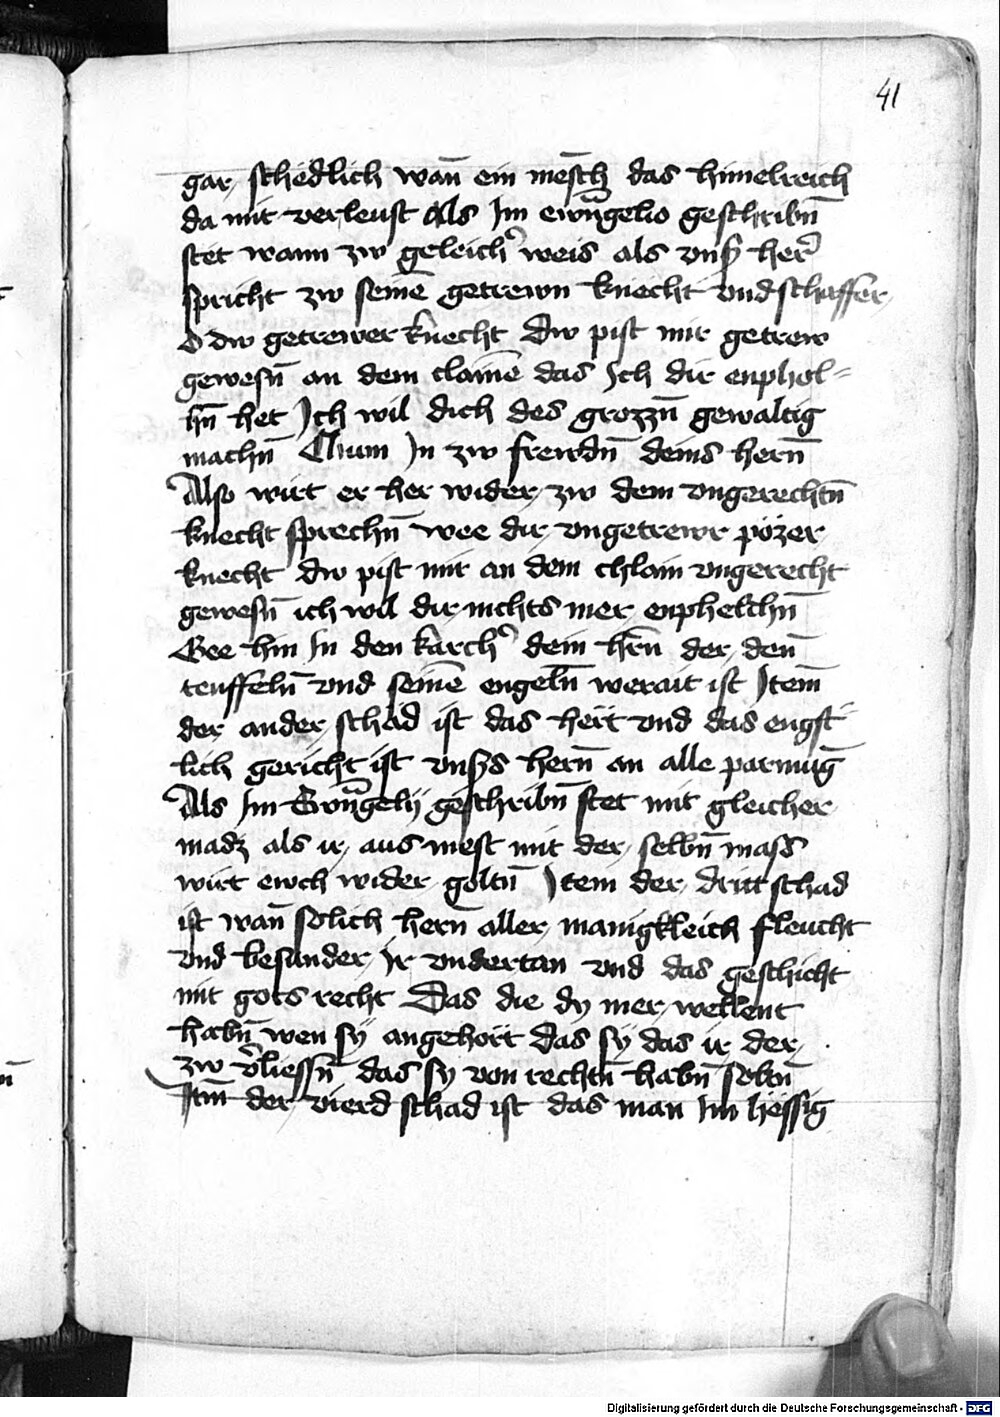 41
gar schedlich wan̄ ein mēsch das himelreich
da mit verleust Als Jm ewn̄gelio geschribn̄
stet wann zw geleicher weis als vnser her̄
spricht zw seinē getrewn knecht vnd schaffer
O dw getrewer knecht Dw pist mir getrew
gewesn̄ an dem clainē das Jch dir enphol-
hn̄ het Jch wil dich des grozzn̄ gewaltig
machn̄ Chum Jn zw frewdn̄ deins hern̄
Also wirt er her wider zw dem vngerechtn̄
knecht sprechn̄ wee dir vngetrewr pözer
knecht dw pist mir an dem chlain vngerecht
gewesn̄ ich wil dir nichts mer enphelchn̄
Gee hin Jn den karcher dein hrn̄ der den̄
teuffeln̄ vnd seinē engeln̄ werait ist Jtem̄
der ander schad ist das hert vnd das engst
lich gericht ist vnsers hern̄ an alle parmūg
Als Jm Ewn̄gelij geschribn̄ stet mit gleicher
madz als ir aus mest mit der selbn̄ mass
wirt ewch wider goltn̄ Jtem der dritt schad
ist wan̄ solich hern̄ aller manigkleich fleucht
vnd besunder ir vndertan vnd das geschicht
mit gots recht Das die dy mer wellent
habn̄ wen sÿ angehort das sÿ das ir der
zw v̄liessn̄ das sy von rechtn̄ habn̄ soltn̄
Jtm̄ der vierd schad ist das man Jm hëssig
Digitalisierung gefördert durch die Deutsche Forschungsgemeinschaft - DFG